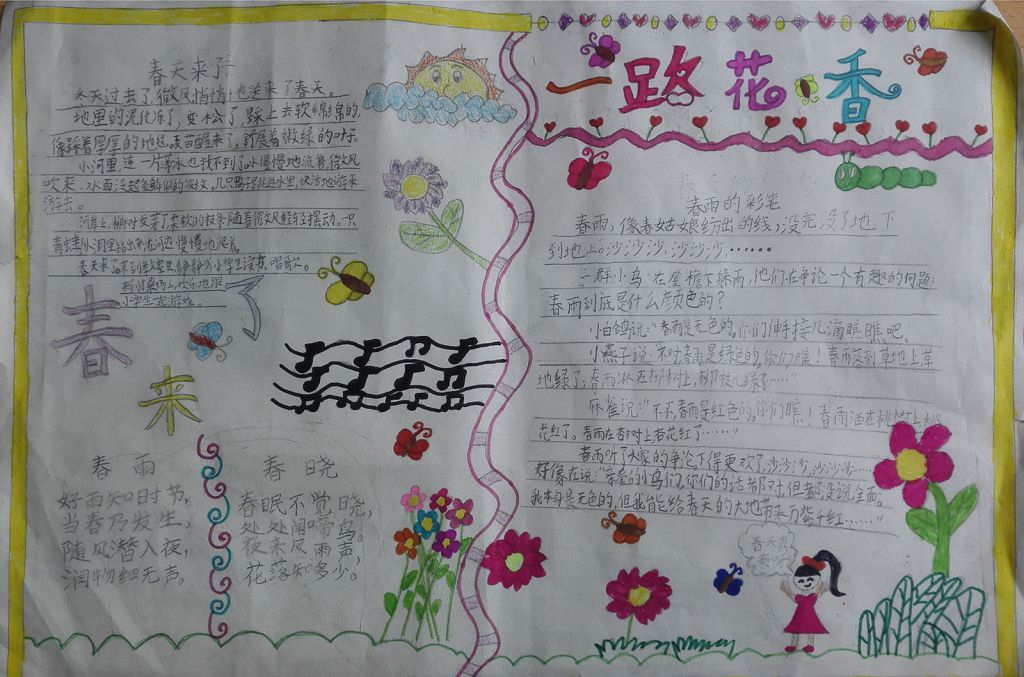 春天来了
冬天过去了,微风悄悄地送来了春天。
地里的泥化冻了,更松了踩上去软绵绵的,
像踩着厚厚的地毯。麦苗醒来了,舒展着嫩绿的叶子。
小河里,连一片薄冰也找不到了。水慢慢地流着,微风
吹来,水面泛起鱼鳞似的波纹,几只鸭子跳进水里,快活地游来
游去。
河岸上,柳树发芽了柔软的枝条随着微风轻轻摆动。一只
青蛙从洞里钻出来在河边慢慢地爬着。
春天来了来到教室里静静听小学生读书、唱歌。
小学生一起游戏。
春
来
了
春雨
好雨知时节,
当春乃发生。
随风潜入夜,
润物细无声。
春晓
春眠不觉晓,
处处闻啼鸟。
夜来风雨声,
花落知多少。
一路花香
春雨的彩笔
春雨,像春姑娘纺出的线,没完没了地下
到地上。沙沙沙,沙沙沙,……
一群小鸟在屋檐下躲雨,他们在争论一个有趣的问题:
春雨到底是什么颜色的?
小白鸽说:“春雨是无色的。你们伸手接几滴瞧瞧吧。
小燕子说:“不对,春雨是绿色的。你们瞧!春雨落到草地上草
地绿了;春雨淋在柳树上,柳枝儿绿了……
麻雀说:“不不,春雨是红色的。你们瞧!春雨洒在桃树上,桃
花红了。春雨在杏树上杏花红了……”
春雨听了大家的争论下得更欢了,沙沙沙,沙沙沙……
好像在说:“亲爱的小鸟们,你们的话都对,但都没说全面。
我本身是无色的,但我能给春天的大地带来万紫千红……”
春天真
美呀